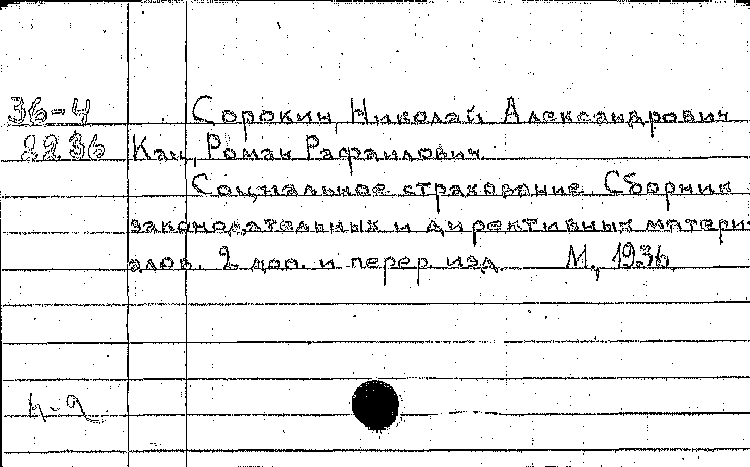 36-4 Сорокин, Николай Александрович
2236 Кац, Роман Рафаилович.
Социальное страхование. Сборник
законодательных и директивных матери-
алов. 2 доп. и перер. изд. М., 1936.